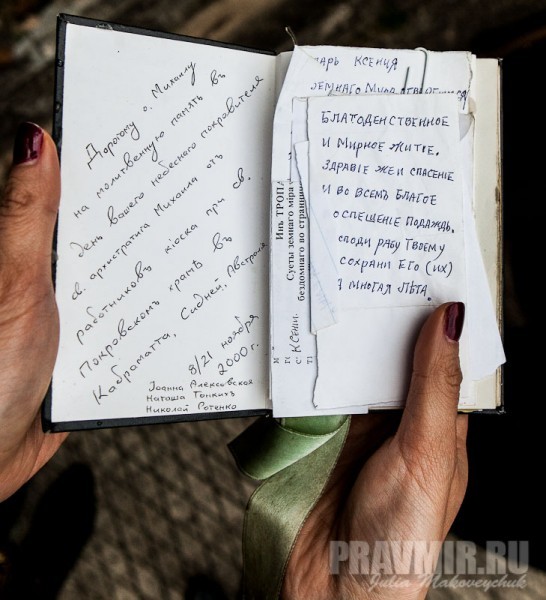 Дорогому о. Михаилу
на молитвенную память въ
день вашего небеснаго покровителя
св. архистратига Михаила отъ
работниковъ кіоска при св.
Покровскомъ храмѣ въ
Кабраматта, Сидней, Австралія
8/21 ноября
2000 г.
Іоанна Алексовская
Наташа Тонкихъ
Николай Ротенко
АРЬ КСЕНИЯ
ЗЕМНАГО МИРА
Инъ ТРОПА
Суеты земнаго міра
бездомнаго во странни
КСЕНИ
БЛАГОДЕНСТВЕННОЕ
И МИРНОЕ ЖИТІЕ.
ЗДРАВІЕ ЖЕ И СПАСЕНІЕ
И ВО ВСЕМЪ БЛАГОЕ
ОСПЕШЕНІЕ ПОДАЖДЬ.
СПОДИ РАБУ ТВОЕМУ
СОХРАНИ ЕГО (ИХ)
МНОГАЯ ЛѢТА.
PRAVMIR.RU
Julia Makoveychuk